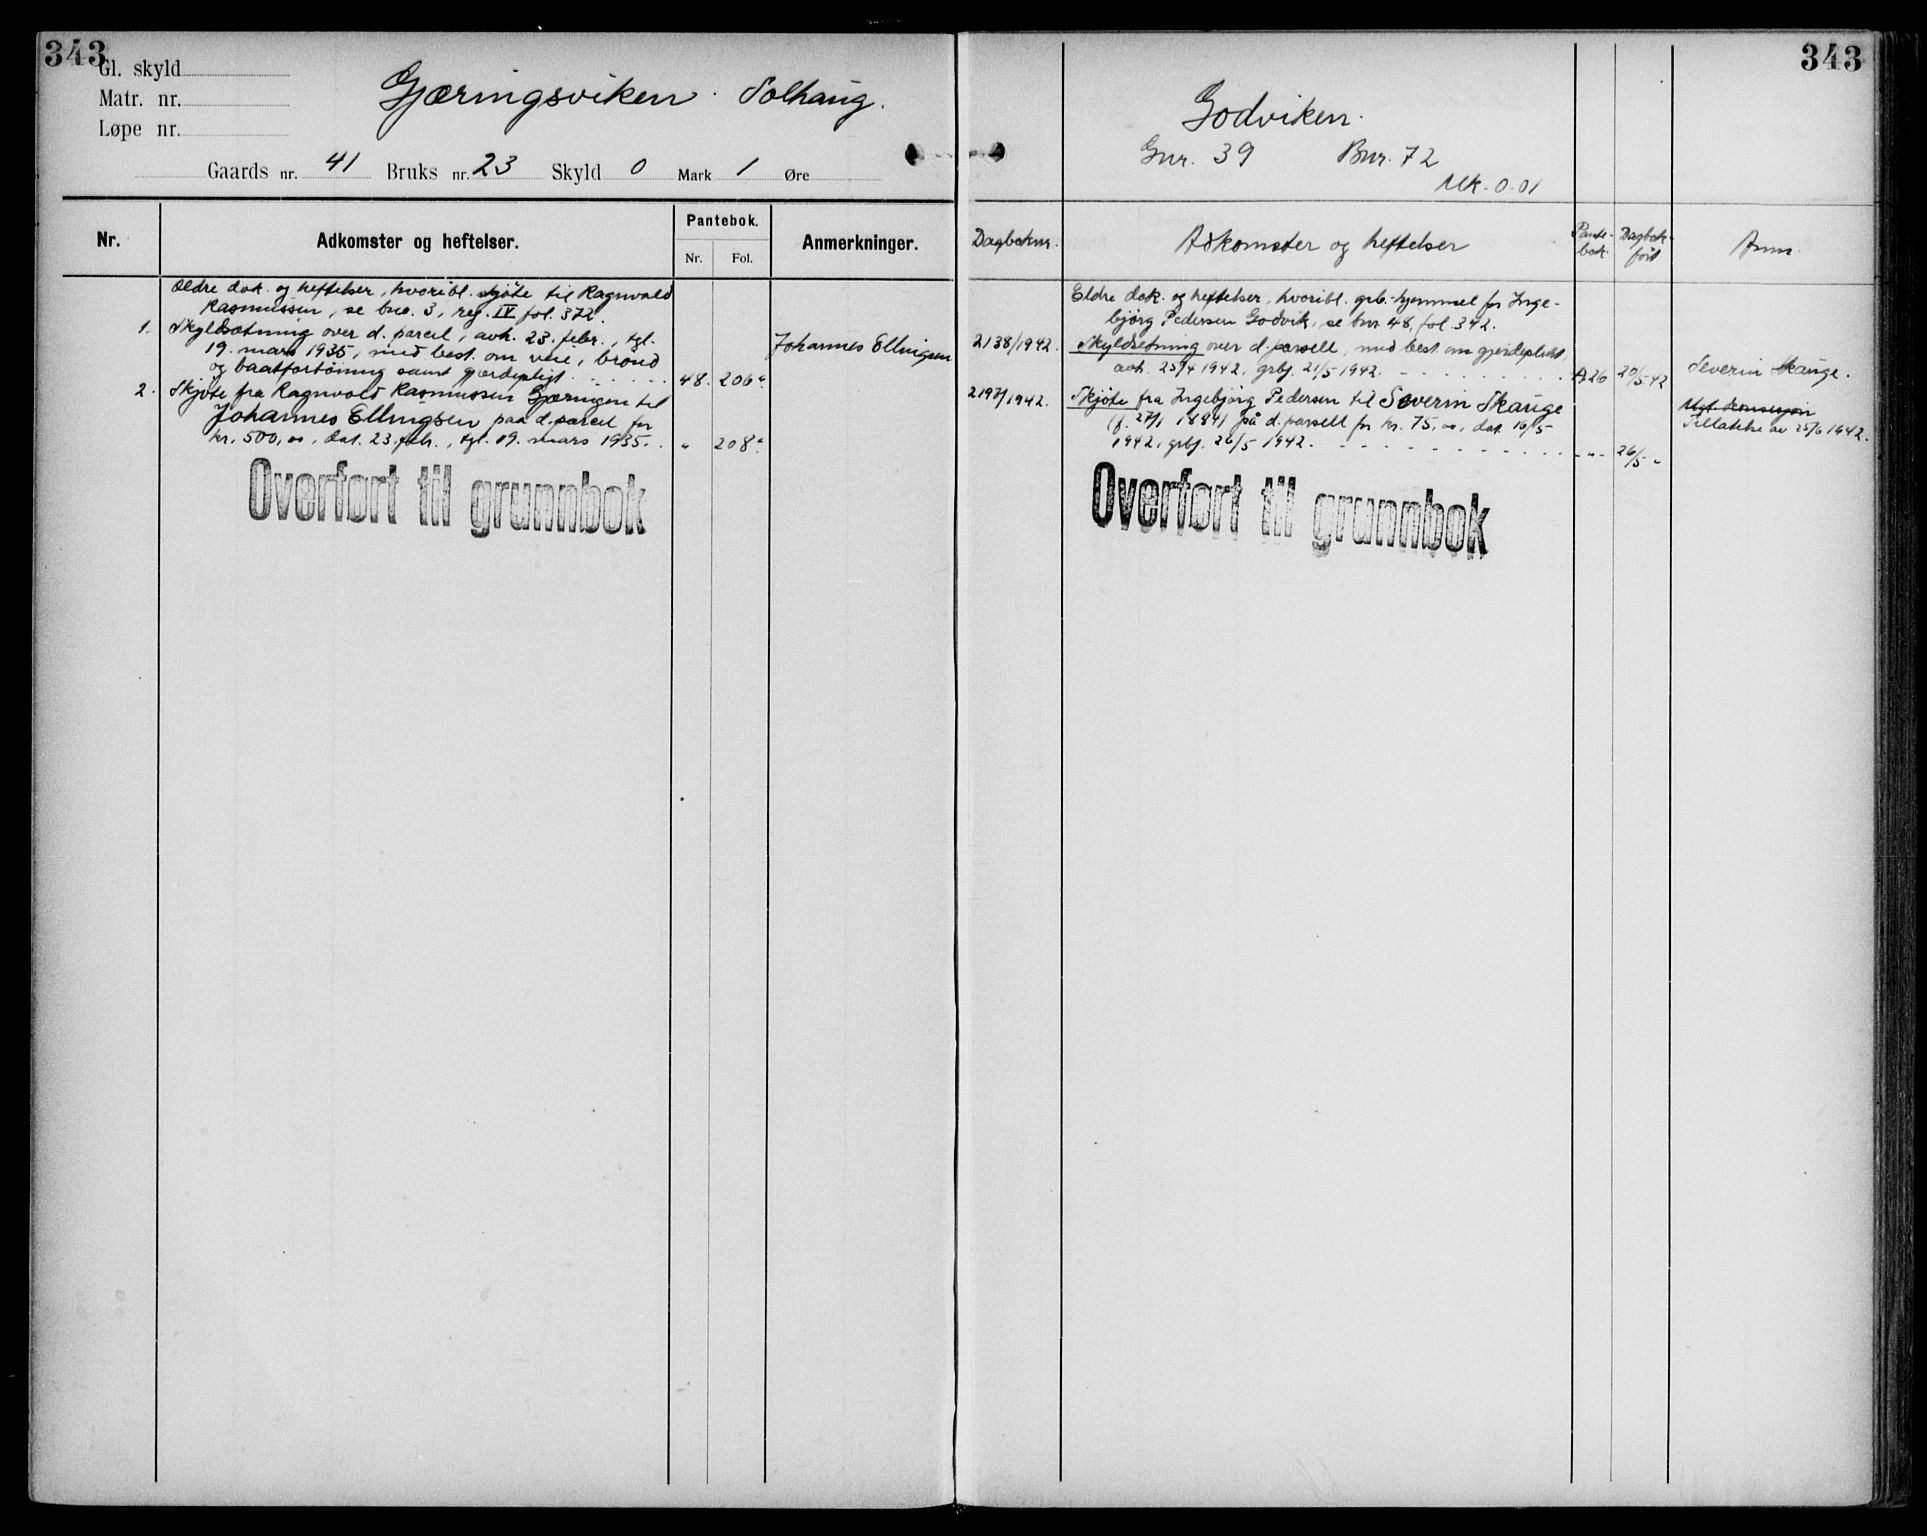 343
Gl. skyld
Matr. nr.
Løpe nr.
Gjæringsviken. Solhaug.
Gaards nr. 41 Bruks nr. 23 Skyld 0 Mark 1 Øre
Nr.
Adkomster og heftelser.
Pantebok.
Nr. Fol.
Anmerkninger.
Ældre dok. og heftelser, hvoribl. skjøte til Ragnvald
Rasmussen, se bno. 3, reg. IV fol. 372.
1. Skyldsætning over d. parcel, avh. 23. febr., tgl.
19. mars 1935, med best. om veie, brønd
og baatfortøining samt gjærdepligt. 48. 206b.
Johannes Ellingsen
2. Skjøte fra Ragnvald Rasmussen Gjæringen til
Johannes Ellingsen paa d. parcel for
kr. 500,00, dat. 23. febr., tgl. 19. mars 1935. " 208a.
Overført til grunnbok
343
Godviken.
Gnr. 39 Bnr. 72
Mk. 0-01
Dagboknr.
Adkomster og heftelser
Pante-
bok.
Dagbok-
ført
Anm.
Eldre dok. og heftelser, hvoribl. grb. hjemmel for Inge-
bjørg Pedersen Godvik, se bnr. 48, fol. 342.
2138/1942. Skyldsetning over d. parsell, med best. om gjerdeplikt,
avh. 25/4 1942, grbf. 21/5 1942. A26 20/5-42
Severin Skauge.
2197/1942. Skjøte fra Ingebjørg Pedersen til Severin Skauge
(f. 27/1 1884) på d. parsell for kr. 75,00, dat. 16/5
1942, grbf. 26/5 1942. - " - 26/5 "
Mgl. konsesjon
Tillatelse av 25/6 1942.
Overført til grunnbok